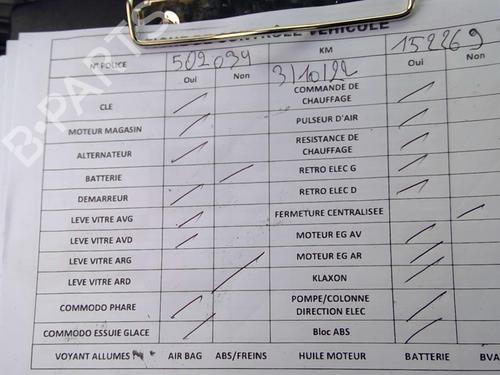 DE CONTRÔLE VÉHICULE
N° POLICE 502034 KM 152269
Oui Non 3/10/22 Oui Non
CLE COMMANDE DE CHAUFFAGE
MOTEUR MAGASIN PULSEUR D'AIR
ALTERNATEUR RESISTANCE DE CHAUFFAGE
BATTERIE RETRO ELEC G
DEMARREUR RETRO ELEC D
LEVE VITRE AVG FERMETURE CENTRALISEE
LEVE VITRE AVD MOTEUR EG AV
LEVE VITRE ARG MOTEUR EG AR
LEVE VITRE ARD KLAXON
COMMODO PHARE POMPE/COLONNE DIRECTION ELEC
COMMODO ESSUIE GLACE Bloc ABS
VOYANT ALLUMES AIR BAG ABS/FREINS HUILE MOTEUR BATTERIE BVA
B-PARTS